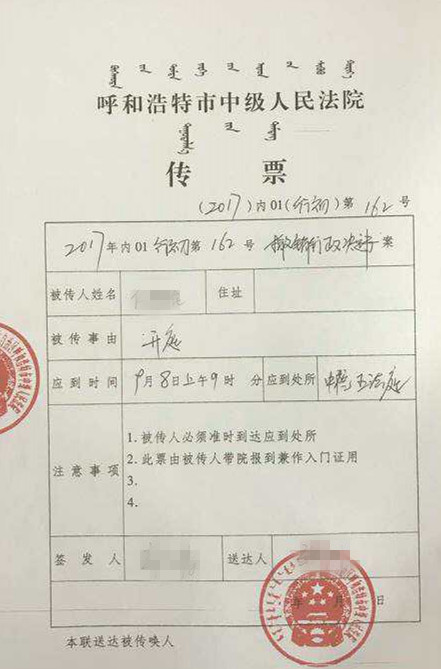 呼和浩特市中级人民法院
传 票
(2017)内01(行初)第162号
2017年内01行初第162号 撤销行政决定案
被传人姓名 住址
被传事由 开庭
应到时间 9月8日上午9时 分 应到处所 中院五法庭
注意事项
1. 被传人必须准时到达应到处所
2. 此票由被传人带院报到兼作入门证用
3.
4.
签发人 送达人
年 月 日
本联送达被传唤人